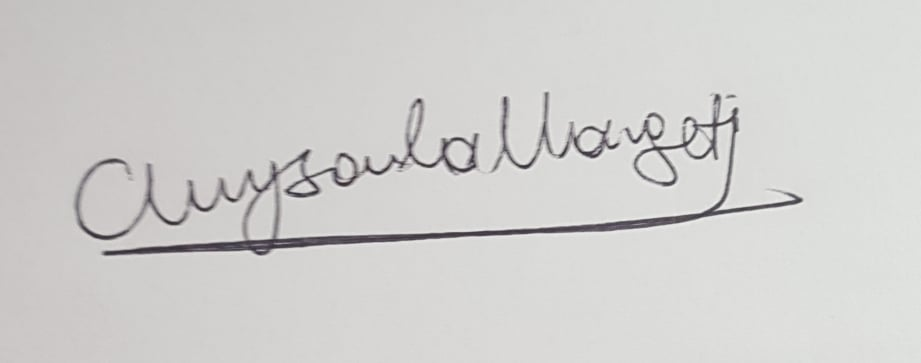 Chrysoula Margoti